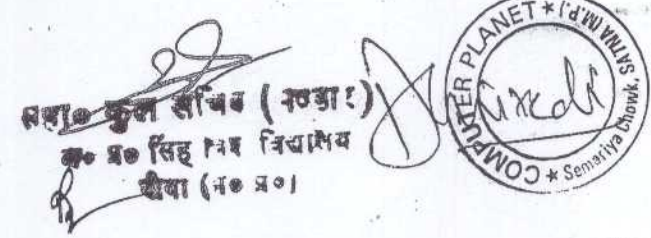 सहा० कुल सचिव (भण्डार)
अ० प्र० सिंह विश्व विद्यालय
रीवा (म० प्र०)
COMPUTER PLANET * Semariya Chowk, SATNA (M.P.) *